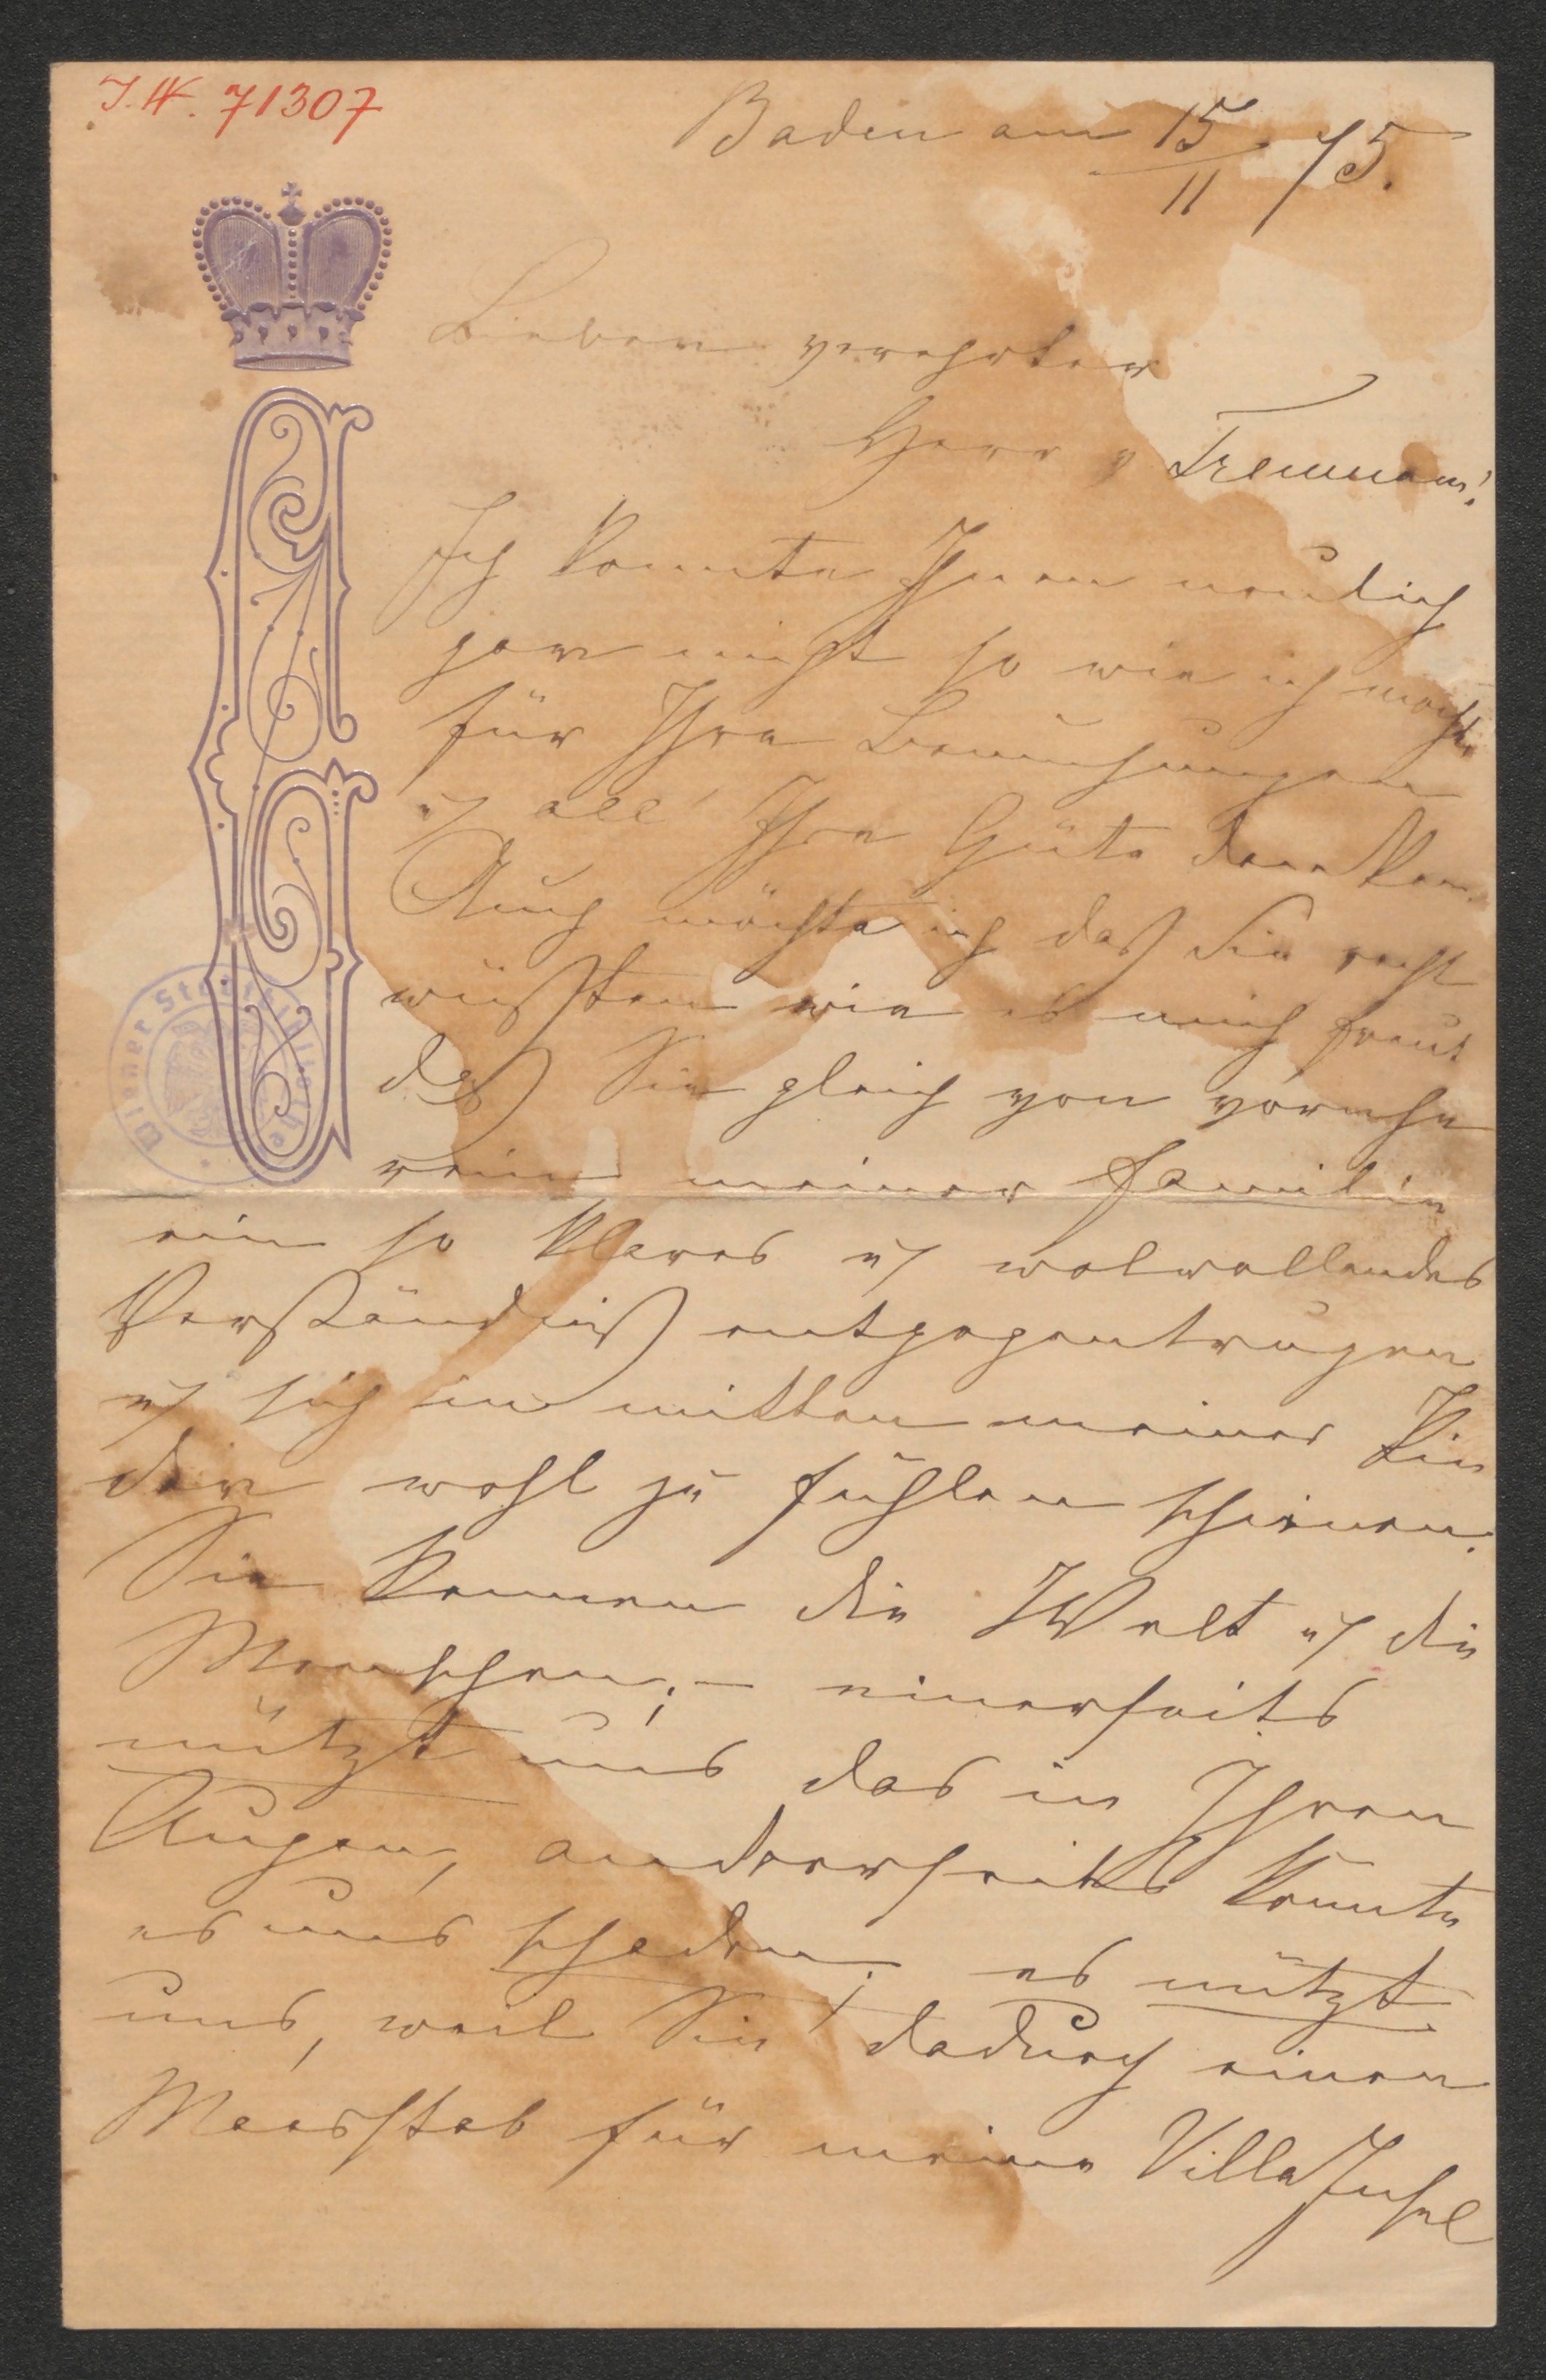 I.N. 71307
Baden am 15/11 75.
Lieber verehrter
Herr v Tremmann!
Ich konnte Ihnen neulich
gar nicht so wie ich mochte
für Ihre Bemühungen
u all' Ihre Güte danken.
Auch möchte ich daß Sie recht
wüßten wie es mich freut
daß Sie gleich von vorneher
rein meiner Familie
ein so klares u wolwollendes
Verständniß entgegentrugen
u sich in mitten meiner Kin
der wohl zu fühlen schienen.
Sie kennen die Welt u die
Menschen; – einerseits
nützt uns das in Ihren
Augen, anderseits konnte
es uns schaden; es nützt
uns, weil Sie dadurch einen
Maasstab für meine Villa Insel
Wiener Stadtbibliothek